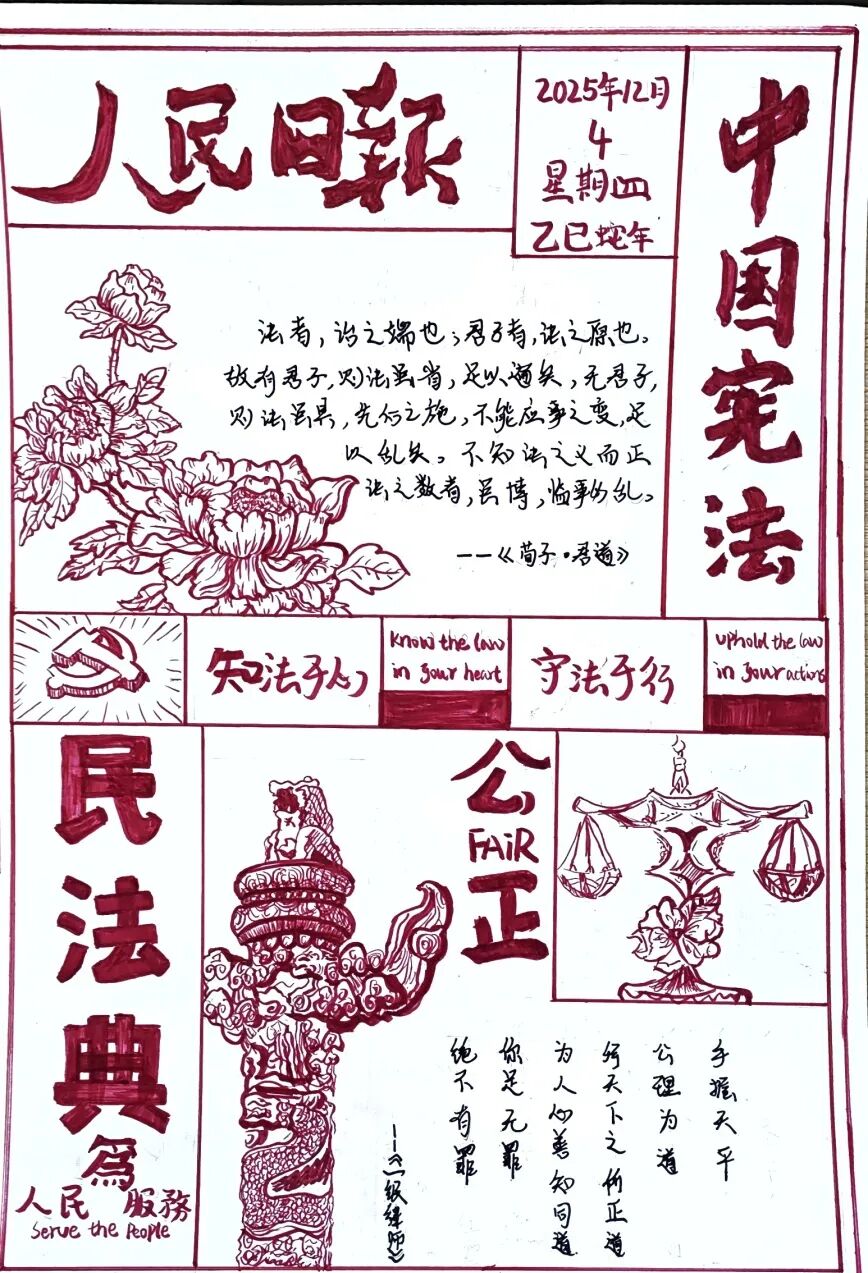 人民日報
2025年12月
4
星期四
乙巳蛇年
中国宪法
法者，治之端也；君子者，法之原也。
故有君子，则法虽省，足以遍矣，无君子，
则法虽具，先后之施，不能应事之变，足
以乱矣。不知法之义而正
法之数者，虽博，临事必乱。
——《荀子·君道》
知法于心
Know the law
in your heart
守法于行
uphold the law
in your actions
民法典
為
人民 服務
Serve the People
公
FAIR
正
手握天平
公理为道
行天下之所正道
为人心善知同道
你是无罪
绝不有罪